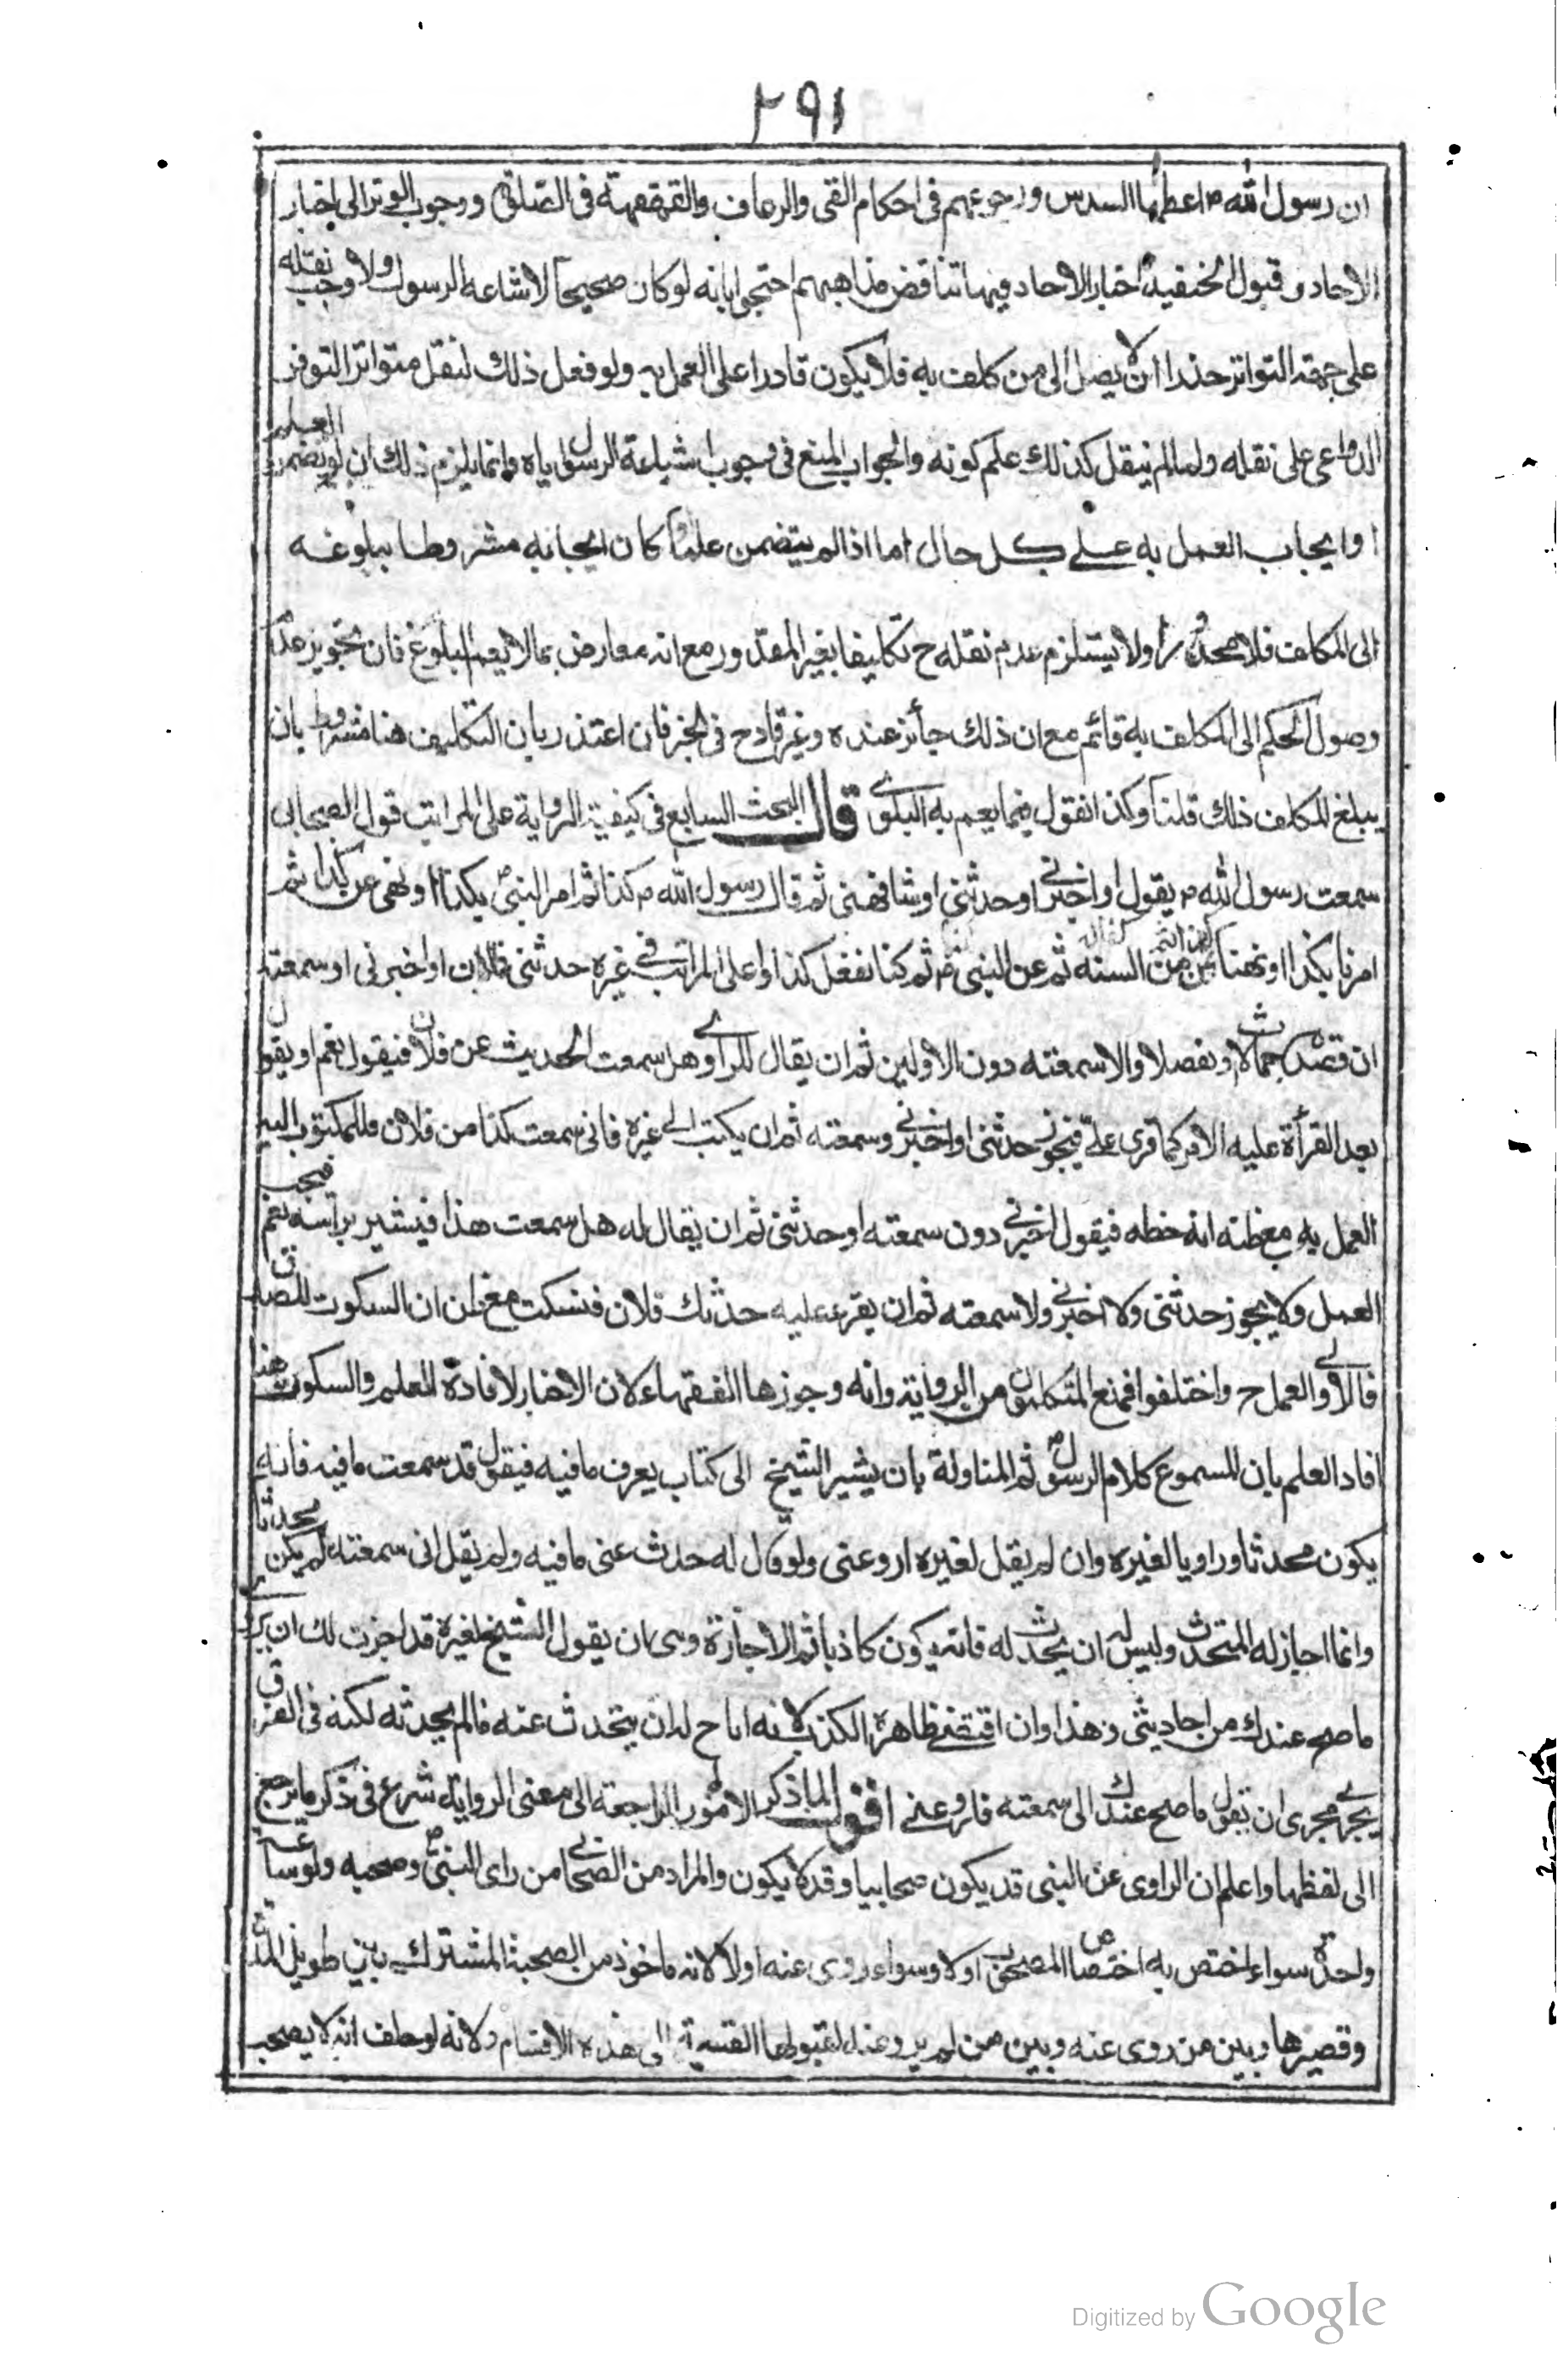 ٢٩١
ان رسول الله ص اعطاها السدس ورجوعهم فى احكام القى والرعاف والقهقهة فى الصلوة ووجوب الوتر الى اخبار
الاحاد وقبول الحنفية اخبار الاحاد فيها تناقض مذاهبهم احتجوا بانه لو كان صحيحا لاشاعه الرسول ولاوجب نقله
على جهة التواتر حذرا ان لا يصل الى من كلف به فلا يكون قادرا على العمل به ولو فعل ذلك لنقل متواترا لتوفر
الدواعى على نقله ولما لم ينقل كذلك علم كونه والجواب المنع فى وجوب اشاعة الرسول اياه وانما يلزم ذلك ان لو تضمن العلم
او ايجاب العمل به على كل حال اما اذا لم يتضمن علما كان ايجابه مشروطا ببلوغه
الى المكلف فلا ولا يستلزم عدم نقله ح تكليفا بغير المقدور مع انه معارض بما لا يعم البلوغ فان تجويز عدم
وصول الحكم الى المكلف به قائم مع ان ذلك جائز عنده وغير قادح فى الخبر فان اعتذر بان التكليف هنا مشروط بان
يبلغ المكلف ذلك قلنا وكذا نقول فيما يعم به البلوى قال البحث السابع فى كيفية الرواية على المراتب قول الصحابى
سمعت رسول الله ص يقول او اخبرنى او حدثنى او شافهنى ثم قال رسول الله ص كذا ثم امر النبى ص بكذا او نهى عن كذا ثم
امرنا بكذا او نهينا من السنه ثم عن النبى ص ثم كنا نفعل كذا واعلى المراتب فى غيره حدثنى فلان او اخبرنى او سمعته
ان قصد اجمالا وتفصلا والا سمعته دون الاولين ثم ان يقال للراوى هل سمعت الحديث عن فلان فيقول نعم او يقول
بعد القرأة عليه الامر كما قرى على فيجوز حدثنى او اخبرنى وسمعته ثم ان يكتب الى غيره فانى سمعت كذا من فلان فللمكتوب اليه
العمل به مع ظنه انه خطه فيقول اخبرنى دون سمعته او حدثنى ثم ان يقال له هل سمعت هذا فيشير براسه نعم فيجب
العمل ولا يجوز حدثنى ولا اخبرنى ولا سمعته ثم ان يقرء عليه حدثك فلان فسكت مع ظن ان السكوت للصدق
فالاولى العمل ح واختلفوا فمنع المتكلمون من الرواية وانه وجوزها الفقهاء لان الاخبار لافادة العلم والسكوت هنا
افاد العلم بان المسموع كلام الرسول ص ثم المناولة بان يشير الشيخ الى كتاب يعرف ما فيه فيقول قد سمعت ما فيه فانه
يكون محدثا وراويا لغيره وان لم يقل لغيره ارو عنى ولو قال له حدث عنى ما فيه ولم يقل انى سمعته لم يكن محدثا
وانما اجاز له التحدث وليس له ان يحدث له فانه يكون كاذبا ثم الاجازة وهى ان يقول الشيخ لغيره قد اجزت لك ان تروى
ما صح عندك من احاديثى وهذا وان اقتضى ظاهره الكذب لانه اباح له ان يتحدث عنه مالم يحدثه لكنه فى العرف
يجرى مجرى ان تقول ما صح عندك انى سمعته فارو عنى اقول لما ذكر الامور الراجعة الى معنى الرواية شرع فى ذكر ما يرجع
الى لفظها واعلم ان الراوى عن النبى قد يكون صحابيا وقد لا يكون والمراد من الصحابى من راى النبى ص وصحبه ولو ساعة
واحدة سواء اختص به اختصاص المصحوب اولا وسواء روى عنه اولا لانه ماخوذ من الصحبة المشترك بين طويل المدة
وقصيرها وبين من روى عنه وبين من لم يرو عنه لقبولها القسمة الى هذه الاقسام ولانه لو حلف انه لا يصحب
Digitized by Google